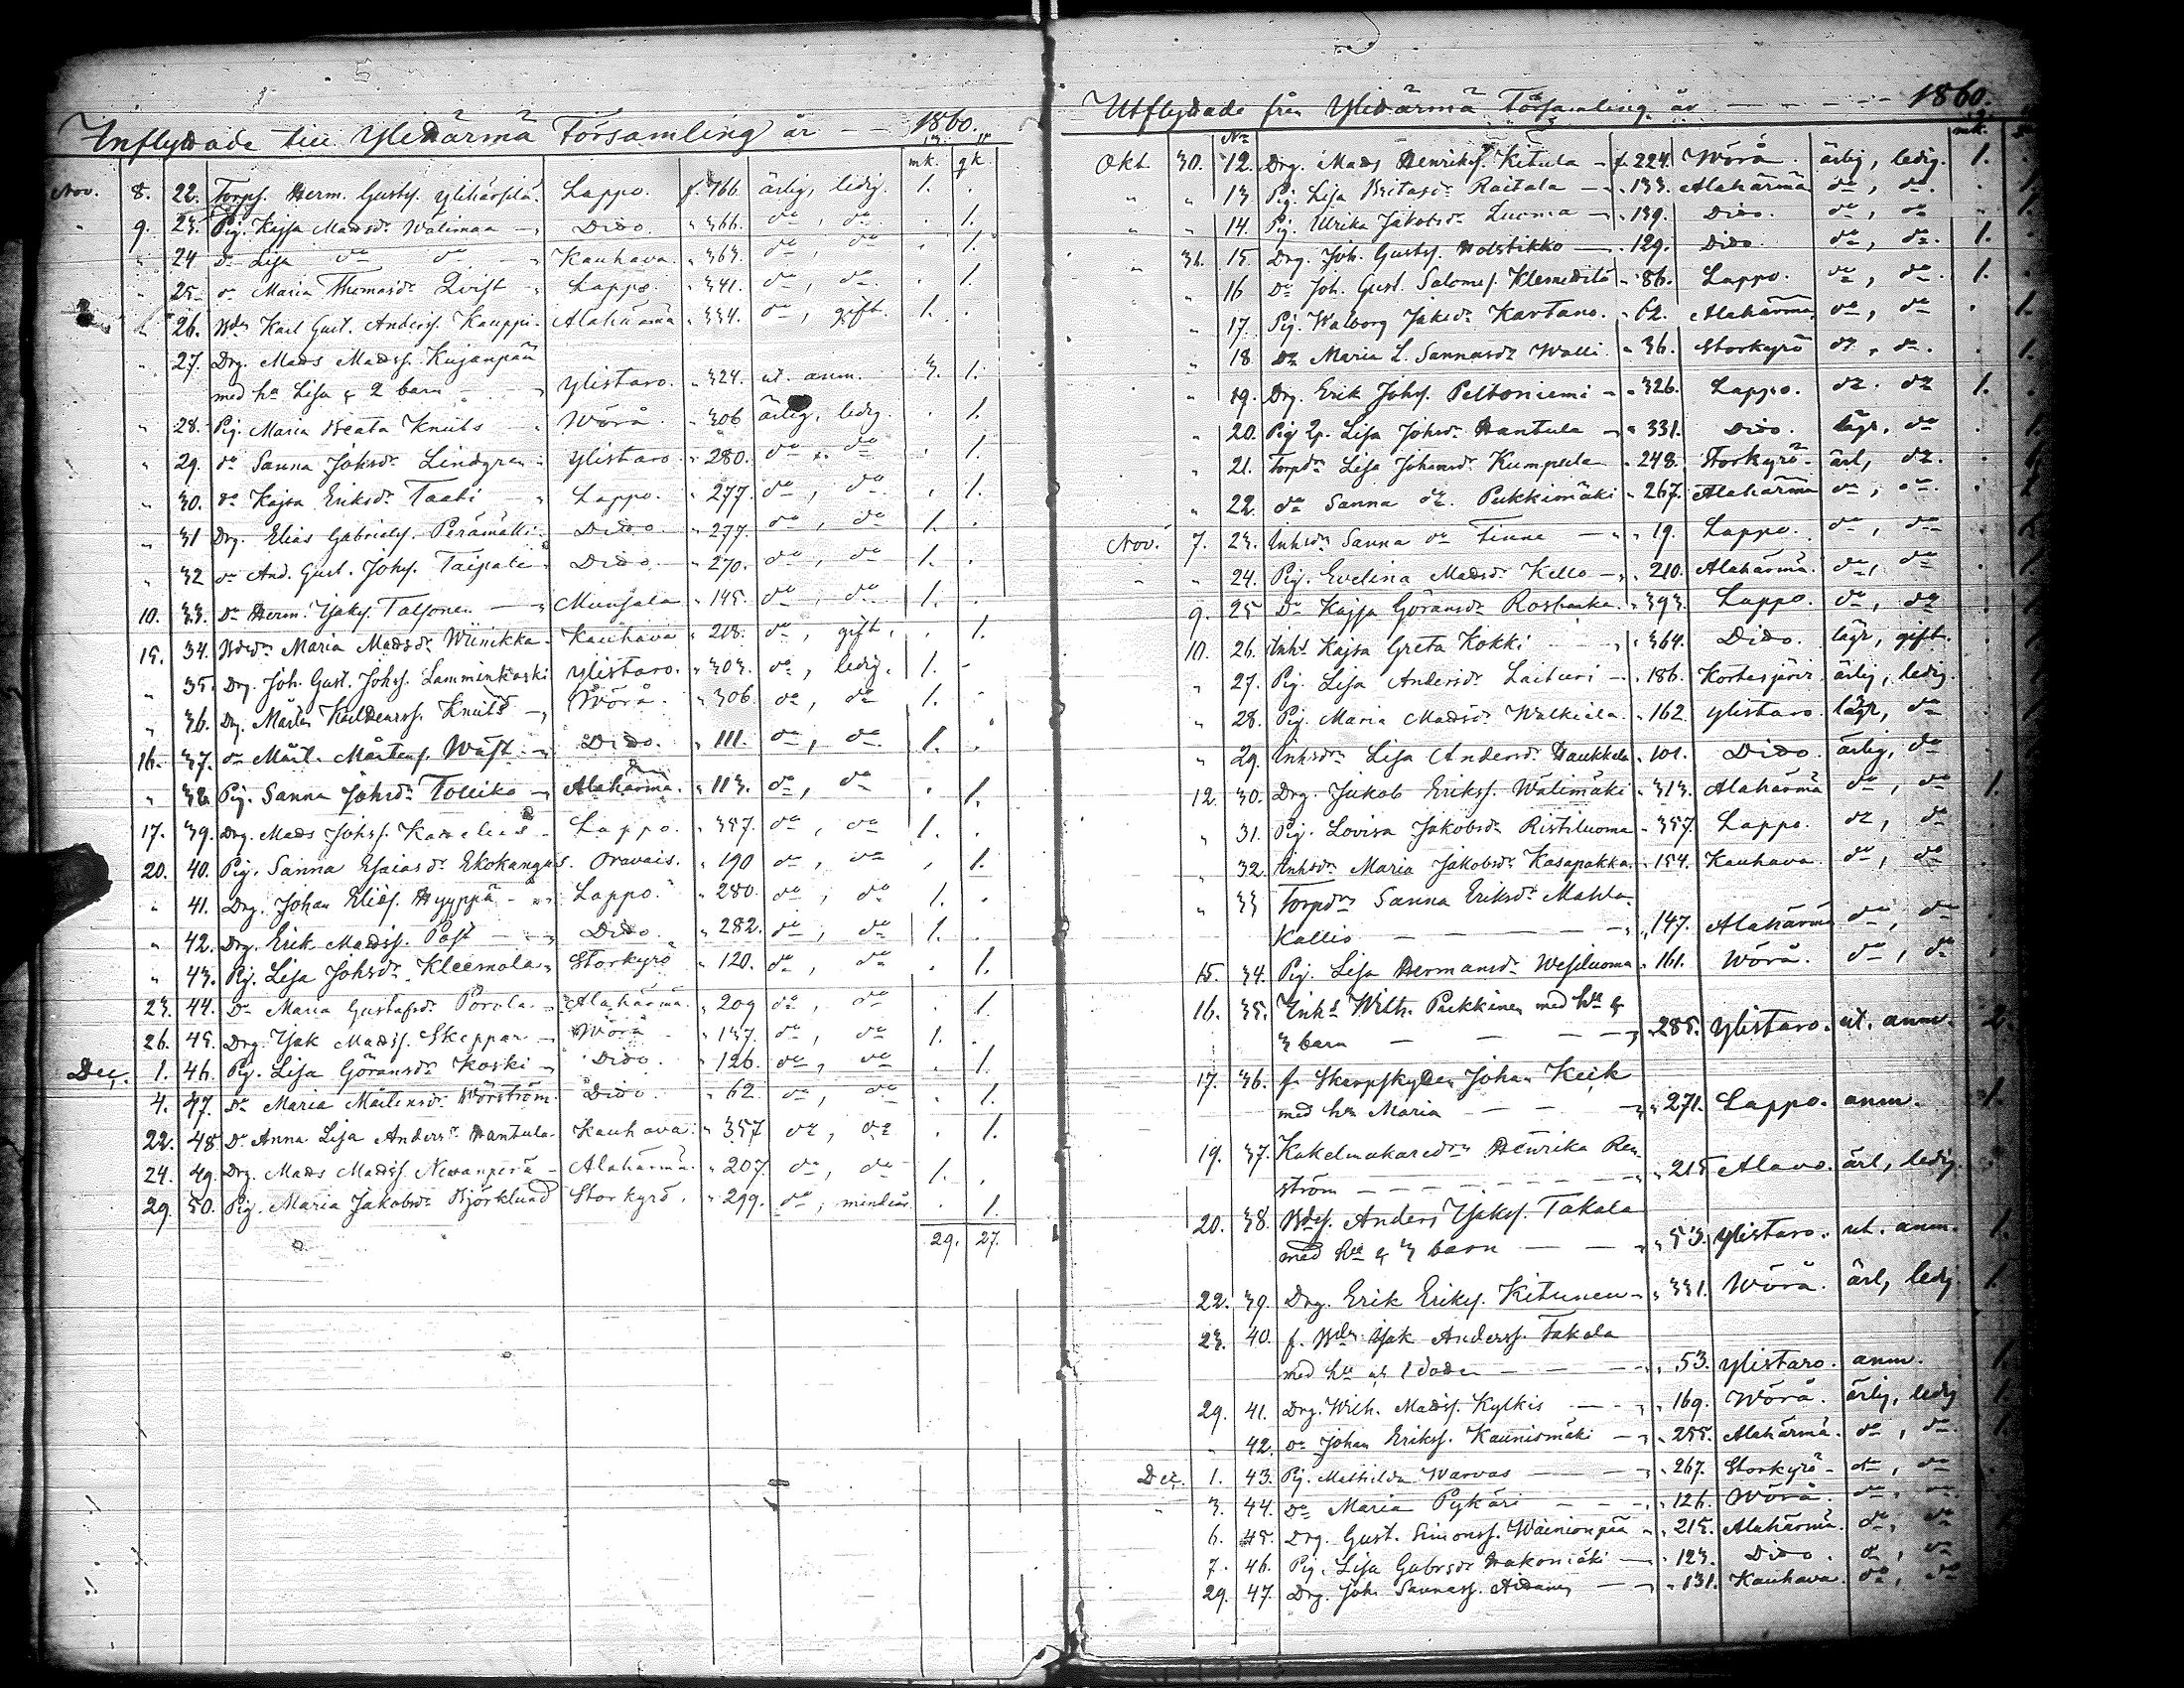 Inflyttade till Ylihärmä Församling år — — 1860.
mk. qk.
Nov. 8. 22. Torps. Herm. Gustfs. Ylihärsilä. Lappo. f. 166. ärlig, ledig. 1. .
" 9. 23. Pig. Kajsa Madsdr Wälimaa — Dido. " 366. do, do. . 1.
" 24 Do Lisa do do Kauhava. " 363. do, do . 1.
" 25. do Maria Thomasdr Qvist " Lappo. " 341. do, do. . 1.
" 26. Karl Gust. Anderss. Kauppi. Alahärmä " 334. do, gift. 1. .
27. Drg. Mads Madss. Kujanpää
med hu Lisa & 2 barn Ylistaro. " 324. ut. anm. 3. 1.
" 28. Pig. Maria Beata Knuts Wörå. " 306 ärlig, ledig. . 1.
" 29. do Sanna Johsdr Lindgren Ylistaro " 280. do, do . 1.
" 30. do Kajsa Eriksdr Taabi Lappo. " 277. do, do . 1.
" 31 Drg. Elias Gabriels. Perämäki. Dido. " 277. do, do 1. .
" 32 do And. Gust. Johs. Taipale Dido " 270. do, do 1. .
10. 33. Do Herm. Isaks. Talsonen — Munsala " 145. do, do 1. .
15. 34. Maria Madsdr Wiinikka Kauhava " 218. do, gift. . 1.
" 35. Drg. Joh. Gust. Johss. Lamminkoski Ylistaro. " 303. do, ledig. 1. -
" 36. Dg. Mårten Knuts Wörå. " 306. do, do 1. .
16. 37. do Mårt. Mårtens. Wäst Dido. " 111. do, do. 1. .
" 38. Pig. Sanna Johsdr Tollikko Alahärmä. " 113. do, do . 1.
17. 39. Drg. Mads Johss. Lappo. " 357. do, do 1. .
20. 40. Pig. Sanna Esaiasdr Ekokangas. Oravais. " 190 do, do . 1.
" 41. Drg. Johan Elias. Hyyppä - Lappo. " 280. do, do 1. .
" 42. Drg. Erik Madss. Post Dido. " 282. do, do 1. .
" 43. Pig. Lisa Johsdr Kleemola Storkyro " 120. do, do . 1.
23. 44. Do Maria Gustafsdr Porola Alahärmä. " 209 do, do . 1.
26. 45. Drg. Isak Madss. Skeppar — Wörå " 137. do, do 1. .
Dec. 1. 46. Pig. Lisa Göransdr Koski Dido. " 126. do, do . 1.
4. 47. Do Maria Mårtensdr Norström. Dido. " 62. do, do . 1.
22. 48 Do Anna Lisa Andersdr Hantula. Kauhava. " 357 do, do . 1.
24. 49. Drg. Mads Madss. Newanperä Alahärmä. " 207. do, do 1. .
29. 50. Pig. Maria Jakobsdr Björklund Storkyro. " 299. do, . 1.
29. 27.
Utflyttade från Ylihärmä Församling år — — — — 1860.
No mk.
Okt 30. 12. Drg. Mads Henrikss. Ketula f. 224. Wörå. ärlig, ledig. 1.
" " 13 Pig. Lisa Britasdr Raitala — " 133. Alahärmä do, do. . 1.
" " 14. Pig. Ulrika Jakobsdr Luoma — " 139. Dido. do, do . 1.
" 31. 15. Drg. Joh. Gustfs. Holstikko — " 129. Dido do, do. 1.
" 16 Do Joh. Gust. Saloms. Klemettilä " 86. Lappo. do, do. 1.
" 17. Pig. Walborg Jaksdr Kartano. " 62. Alahärmä, do, do . 1.
" 18 Do Maria L. Sannasdr Walli. " 36. Storkyrö do, do. . 1.
" 19. Drg. Erik Johs. Peltoniemi " 326. Lappo. do. do 1. .
" 20. Pig. Lisa Johsdr Hantula " 331. Dido lägr, do . 1.
" 21. Torpdr Lisa Johansdr Kumpula " 248. Storkyrö. ärl, do.
" 22. do Sanna do. Pukkimäki " 267. Alahärmä do, do.
Nov. 7. 23. Inhsdr Sanna do Finne — " 19. Lappo. do, do
" " 24. Pig. Evelina Madsdr Kello — " 210. Alahärmä. do, do
9. 25 Do Kajsa Göransdr Rosbacka. " 393. Lappo. do, do
10. 26. Inhs Kajsa Greta Kokki " 364. Dido. lägr, gift.
" 27. Pig. Lisa Andersdr Laituri " 186. Kortesjärvi. ärlig, ledig.
" 28. Pig. Maria Madsdr Walkiala " 162. Ylistaro lägr, do
" 29. Inhsdr Lisa Andersdr Haukkala " 101. Dido. ärlig, do
12. 30. Drg. Jakob Erikss. Wälimäki " 313. Alahärmä do, do 1.
" 31. Pig. Lovisa Jakobsdr Ristiluoma " 357. Lappo. do, do
" 32. Inhsdr Maria Jakobsdr Kasapakka. " 154. Kauhava. do, do
" 33 Torpdr Sanna Eriksdr Mahla
Kallio — — — — " 147. Alahärmä do, do
15. 34. Pig. Lisa Hermansdr Wesiluoma " 161. Wörå. do, do
16. 35. Inhs Wilh. Pukkinen med hu &
3 barn — — — " 285. Ylistaro. ut. anm. 2.
17. 36. f. Skarpskytten Johan Keik
med hu Maria — — " 271. Lappo. anm. 1.
19. 37. Kakelmakaredr Henrika Ren
ström — — — — " 215 Alavo. ärl, ledig.
20. 38. Anders Isaks. Takala
med hu & 3 barn — — " 53. Ylistaro. ut. anm. 1.
22. 39. Drg. Erik Eriks. Kitunen " 331. Wörå. ärl, ledig. 1.
23. 40. f. Isak Anderss. Takala
med hu & 1 dotter — — " 53. Ylistaro. anm. 1.
29. 41. Drg. Wilh. Madss. Kylkis — " 169. Wörå. ärlig, ledig 1.
" 42. do Johan Erikss. Kaunismäki — " 255. Alahärmä. do, do. 1.
Dec. 1. 43. Pig. Mathilda Warvas — — " 267. Storkyrö. do, do
" 3. 44. Do Maria Pykäri — — " 126. Wörå. do, do
6. 45. Drg. Gust. Simonss. Wäinionpää " 215. Alahärmä. do, do
7. 46. Pig. Lisa Gabrsdr Hakomäki — " 123. Dido. do, do
29. 47. Drg. Joh. Sannass. — " 131. Kauhava. do, do